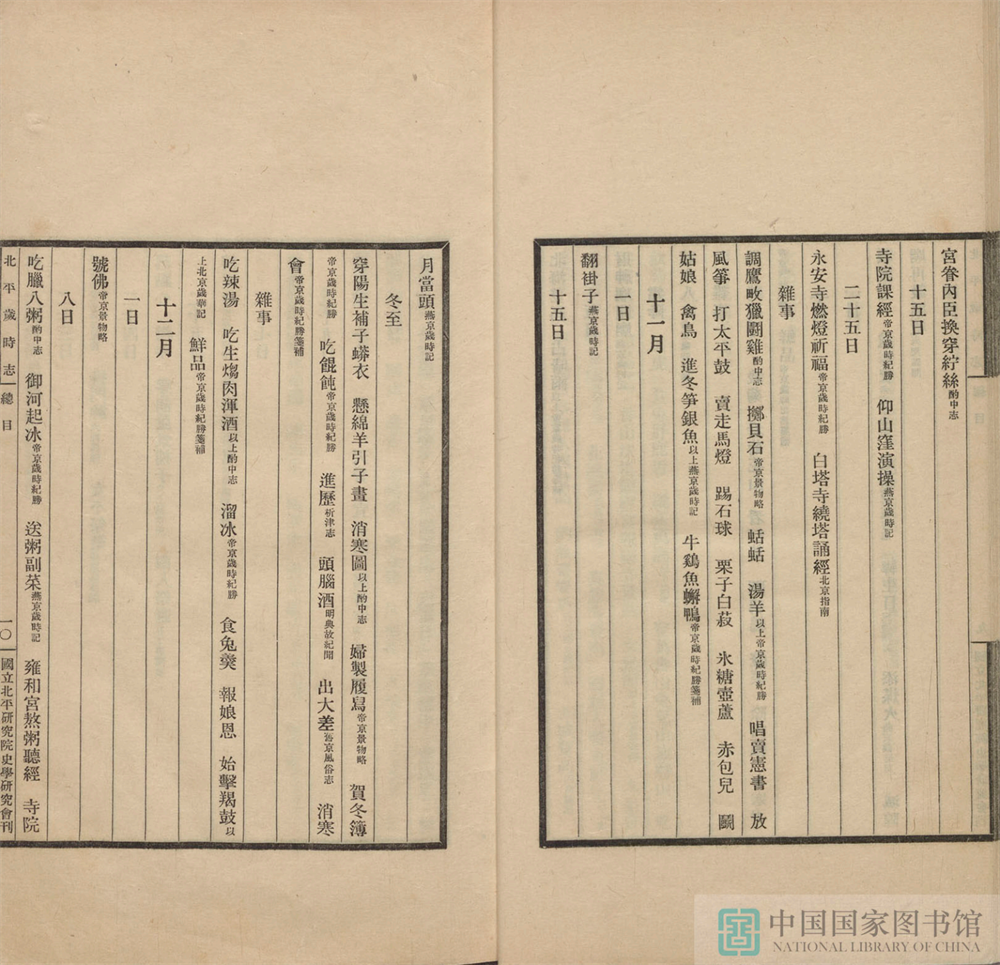 宮眷內臣換穿紵絲酌中志
十五日
寺院課經帝京歲時紀勝 仰山窪演操燕京歲時記
二十五日
永安寺燃燈祈福帝京歲時紀勝 白塔寺繞塔誦經北京指南
雜事
調鷹畋獵鬭雞酌中志 擲貝石帝京景物略 蛞蛞 湯羊以上帝京歲時紀勝 唱賣憲書 放
風箏 打太平鼓 賣走馬燈 踢石球 栗子白菽 氷糖壺蘆 赤包兒 鬭
姑娘 禽鳥 進冬笋銀魚以上燕京歲時記 牛鷄魚蠏鴨帝京歲時紀勝箋補
十一月
一日
翻褂子燕京歲時記
十五日
月當頭燕京歲時記
冬至
穿陽生補子蟒衣 懸綿羊引子畫 消寒圖以上酌中志 婦製履舄帝京景物略 賀冬簿
帝京歲時紀勝 吃餛飩帝京歲時紀勝 進歷析津志 頭腦酒明典故紀聞 出大差舊京風俗志 消寒
會帝京歲時紀勝箋補
雜事
吃辣湯 吃生煼肉渾酒以上酌中志 溜冰帝京歲時紀勝 食兔羹 報娘恩 始擊羯鼓以
上北京歲華記 鮮品帝京歲時紀勝箋補
十二月
一日
號佛帝京景物略
八日
吃臘八粥酌中志 御河起冰帝京歲時紀勝 送粥副菜燕京歲時記 雍和宮熬粥聽經 寺院
北平歲時志 總目 一〇 國立北平研究院史學研究會刊
中国国家图书馆
NATIONAL LIBRARY OF CHINA